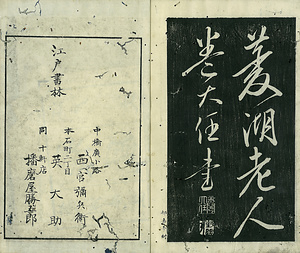 菱湖老人
巻大任書
江戸書林
中橋廣小路
西宮彌兵衛
本石町二丁目
英大助
同十軒店
播磨屋勝五郎